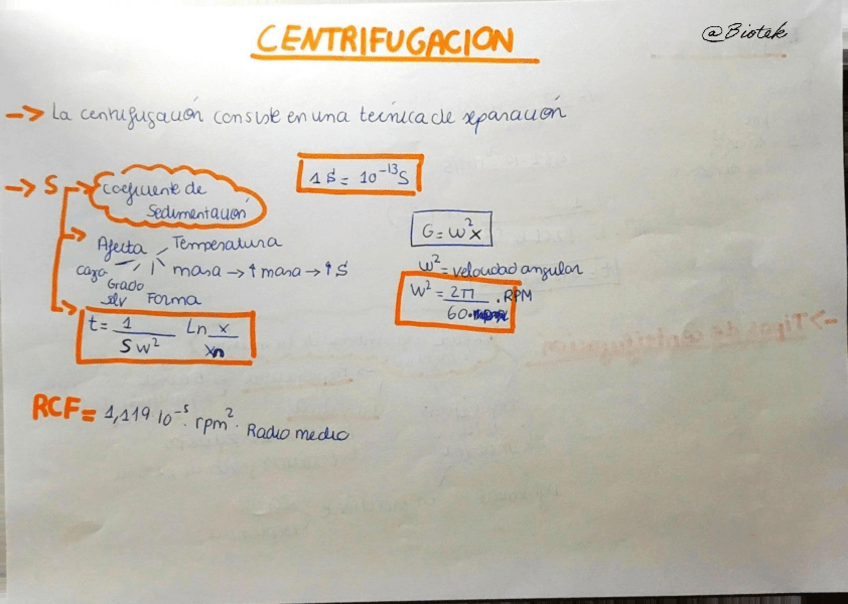 CENTRIFUGACION
@Biotek
→ La centrifugación consiste en una tecnica de separación
→ S → Coeficiente de
Sedimentación
1 S = 10⁻¹³ S
→ Afecta
Temperatura
masa → ↑ masa → ↑ S
Forma
Grado
carga
→ t = 1 / S w² Ln x / xn
G = w² x
w² = velocidad angular
w² = 2π / 60 . RPM
RCF = 1,119 10⁻⁵ . rpm² . Radio medio
→ Tipos de centrifugación